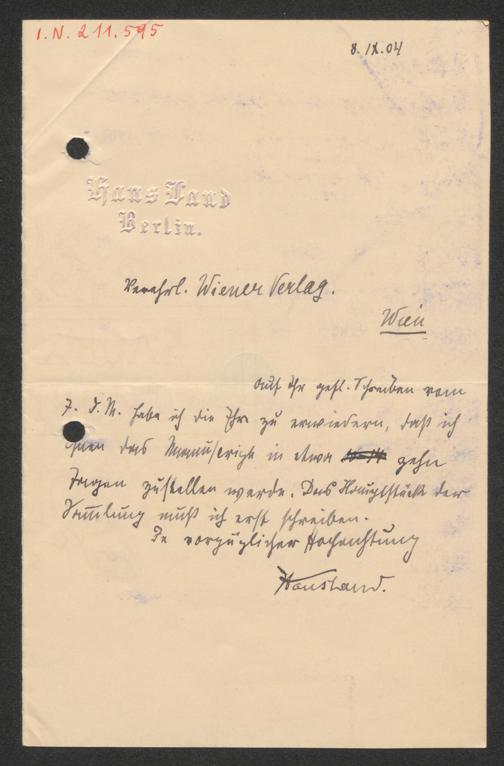 I.N. 211.595
8. IX. 04
Hans Land
Berlin.
Verehrl. Wiener Verlag.
Wien
Auf Ihr gefl. Schreiben vom
7. d. M. habe ich die Ehre zu erwiedern, daß ich
Ihnen das Manuscript in etwa zehn
Tagen zustellen werde. Das Hauptstück der
Sammlung muß ich erst schreiben.
In vorzüglicher Hochachtung
Hans Land.